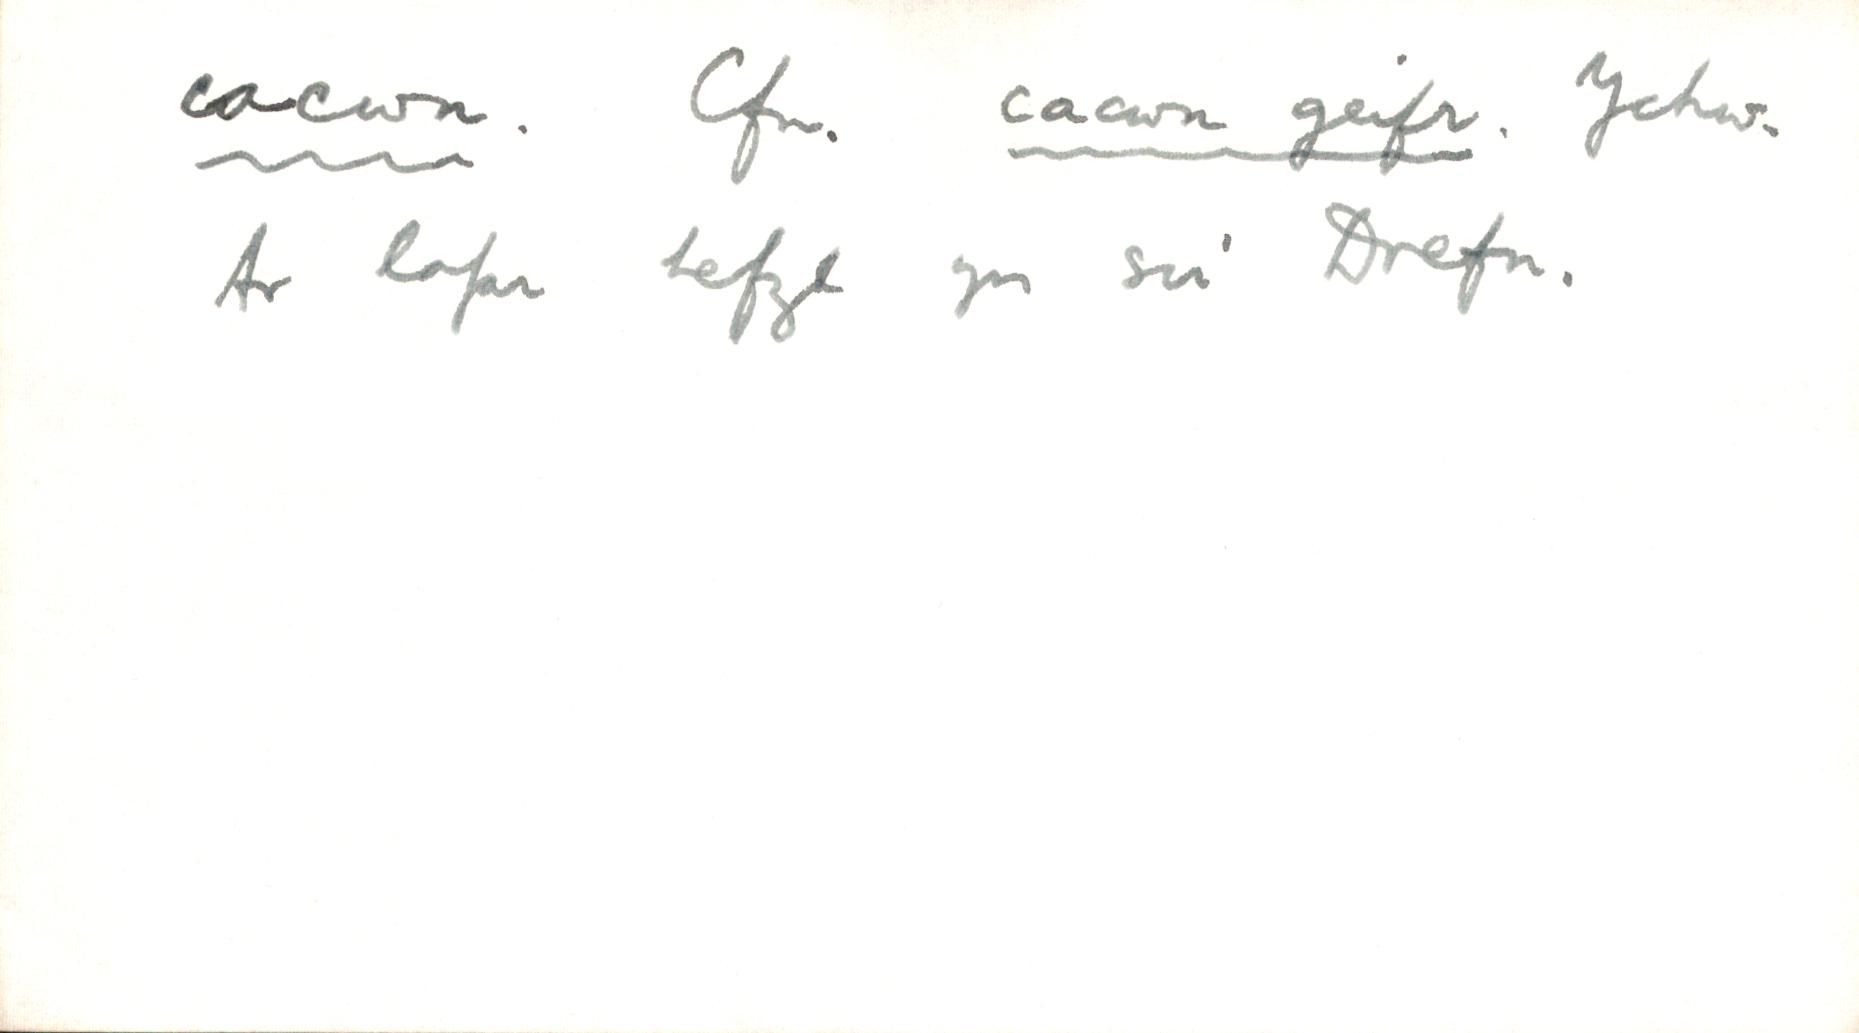 cacwn. Cfn. cacwn geifr. Ychw.
Ar lafar yn sir Drefn.